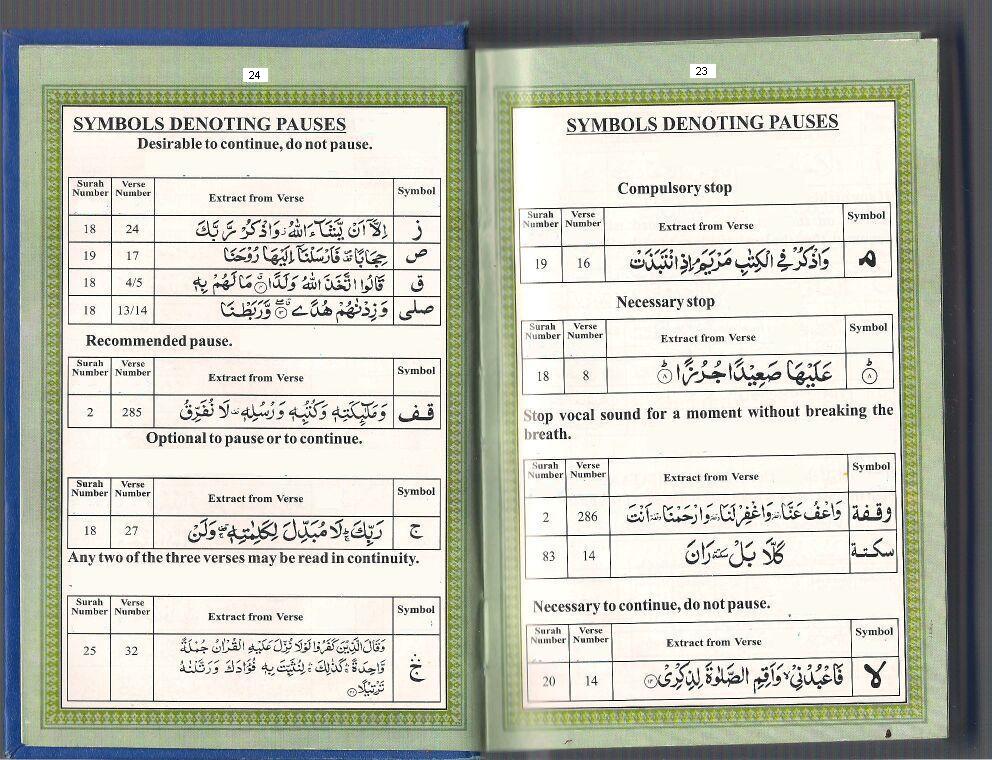 23
SYMBOLS DENOTING PAUSES
Compulsory stop
Surah Number Verse Number Extract from Verse Symbol
19 16 وَاذْكُرْ فِي الْكِتٰبِ مَرْيَمَ ۘ اِذِ انْتَبَذَتْ م
Necessary stop
Surah Number Verse Number Extract from Verse Symbol
18 8 عَلَيْهَا صَعِيْدًا جُرُزًا ؕ ۸ ط ۸
Stop vocal sound for a moment without breaking the
breath.
Surah Number Verse Number Extract from Verse Symbol
2 286 وَاعْفُ عَنَّا وقفة وَاغْفِرْ لَنَا وقفة وَارْحَمْنَا وقفة اَنْتَ وقفة
83 14 كَلَّا بَلْ سكتة رَانَ سكتة
Necessary to continue, do not pause.
Surah Number Verse Number Extract from Verse Symbol
20 14 فَاعْبُدْنِيْ ۙ وَاَقِمِ الصَّلٰوةَ لِذِكْرِيْ ۱۴ لا
24
SYMBOLS DENOTING PAUSES
Desirable to continue, do not pause.
Surah Number Verse Number Extract from Verse Symbol
18 24 اِلَّاۤ اَنْ يَّشَآءَ اللّٰهُ ز وَاذْكُرْ رَّبَّكَ ز
19 17 حِجَابًا فَاَرْسَلْنَاۤ اِلَيْهَا رُوْحَنَا ص
18 4/5 قَالُوا اتَّخَذَ اللّٰهُ وَلَدًا ق ۴ مَا لَهُمْ بِهٖ ق
18 13/14 وَزِدْنٰهُمْ هُدًى ۱۳ وَّرَبَطْنَا صلى
Recommended pause.
Surah Number Verse Number Extract from Verse Symbol
2 285 وَمَلٰٓئِكَتِهٖ وَكُتُبِهٖ وَرُسُلِهٖ قف لَا نُفَرِّقُ قف
Optional to pause or to continue.
Surah Number Verse Number Extract from Verse Symbol
18 27 رَبِّكَ ۚ لَا مُبَدِّلَ لِكَلِمٰتِهٖ وَلَنْ ج
Any two of the three verses may be read in continuity.
Surah Number Verse Number Extract from Verse Symbol
25 32 وَقَالَ الَّذِيْنَ كَفَرُوْا لَوْلَا نُزِّلَ عَلَيْهِ الْقُرْاٰنُ جُمْلَةً
وَّاحِدَةً ۛ كَذٰلِكَ ۛ لِنُثَبِّتَ بِهٖ فُؤَادَكَ وَرَتَّلْنٰهُ
تَرْتِيْلًا ۳۲